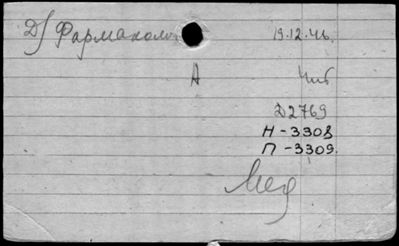 Д/ Фармаколо 19.12.46.
А Чит
Д2769
Н-3308
П-3309.
Мед